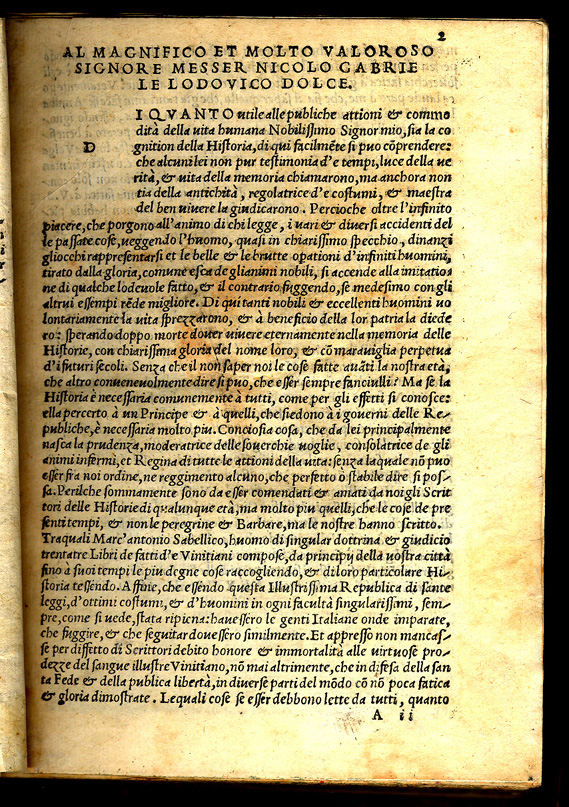 2
AL MAGNIFICO ET MOLTO VALOROSO
SIGNORE MESSER NICOLO GABRIE
LE LODOVICO DOLCE.
D
I QVANTO utile alle publiche attioni & commo
dità della uita humana Nobilissimo Signor mio, sia la co
gnition della Historia, di qui facilmēte si puo cōprendere:
che alcuni lei non pur testimonia d'e tempi, luce della ue
rità, & uita della memoria chiamarono, ma anchora non
tia della antichità, regolatrice d'e costumi, & maestra
del ben uiuere la giudicarono. Percioche oltre l'infinito
piacere, che porgono all'animo di chi legge, i uari & diuersi accidenti del
le passate cose, ueggendo l'huomo, quasi in chiarissimo specchio, dinanzi
gliocchi rappresentarsi et le belle & le brutte opationi d'infiniti huomini,
tirato dalla gloria, comune esca de glianimi nobili, si accende alla imitatio=
ne di qualche lodeuole fatto, & il contrario fuggendo, se medesimo con gli
altrui essempi rēde migliore. Di qui tanti nobili & eccellenti huomini uo
lontariamente la uita sprezzarono, & à beneficio della lor patria la diede
ro: sperando doppo morte douer uiuere eternamente nella memoria delle
Historie, con chiarissima gloria del nome loro, & cō marauiglia perpetua
d'i futuri secoli. Senza che il non saper noi le cose fatte auāti la nostra età,
che altro conueneuolmente dire si puo, che esser sempre fanciulli? Ma se la
Historia è necessaria comunemente à tutti, come per gli effetti si conosce:
ella percerto à un Principe & à quelli, che siedono à i gouerni delle Re=
publiche, è necessaria molto piu. Conciosia cosa, che da lei principalmente
nasca la prudenza, moderatrice delle souerchie uoglie, consolatrice de gli
animi infermi, et Regina di tutte le attioni della uita: senza laquale nō puo
esser fra noi ordine, ne reggimento alcuno, che perfetto o stabile dire si pos=
sa. Perilche sommamente sono da esser comendati & amati da noi gli Scrit
tori delle Historie di qualunque età, ma molto piu quelli, che le cose de pre
senti tempi, & non le peregrine & Barbare, ma le nostre hanno scritto.
Tra quali Marc'antonio Sabellico, huomo di singular dottrina & giudicio
trentatre Libri de fatti d'e Vinitiani compose, da principij della uostra città
fino à suoi tempi le piu degne cose raccogliendo, & di loro particolare Hi=
storia tessendo. Affine, che essendo questa Illustrissima Republica di sante
leggi, d'ottimi costumi, & d'huomini in ogni facultà singularissimi, sem=
pre, come si uede, stata ripiena: hauessero le genti Italiane onde imparate,
che fuggire, & che seguitar douessero similmente. Et appresso non mancas=
se per diffitto di Scrittori debito honore & immortalità alle uirtuose pro=
dezze del sangue illustre Vinitiano, nō mai altrimente, che in difesa della san
ta Fede & della publica libertà, in diuerse parti del mōdo cō nō poca fatica
& gloria dimostrate. Lequali cose se esser debbono lette da tutti, quanto
A ii